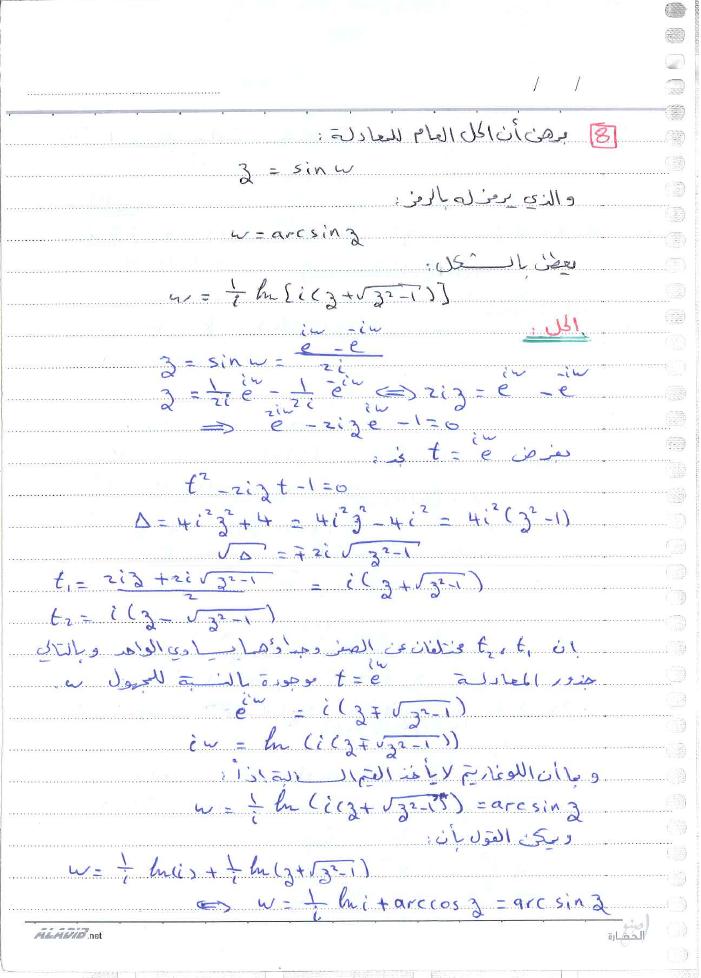 / /
8 برهن أن الحل العام للمعادلة :
z = sin w
والذي يرمز له بالرمز :
w = arcsin z
يعطى بالشكل :
w = 1/i ln[i(z + √(z² - 1))]
الحل :
z = sin w = (e^{iw} - e^{-iw}) / 2i
z = 1/2i e^{iw} - 1/2i e^{-iw} ⟺ 2iz = e^{iw} - e^{-iw}
⟹ e^{2iw} - 2iz e^{iw} - 1 = 0
بفرض t = e^{iw} نجد :
t² - 2iz t - 1 = 0
Δ = 4i²z² + 4 = 4i²z² - 4i² = 4i²(z² - 1)
√Δ = ∓2i √(z² - 1)
t₁ = (2iz + 2i√(z² - 1)) / 2 = i(z + √(z² - 1))
t₂ = i(z - √(z² - 1))
إن t₁ ، t₂ مختلفان عن الصفر وجداؤهما يساوي الواحد وبالتالي
جذور المعادلة t = e^{iw} موجودة بالنسبة للمجهول w
e^{iw} = i(z ∓ √(z² - 1))
iw = ln (i(z ∓ √(z² - 1)))
وبما أن اللوغاريتم لا يأخذ القيم السالبة إذاً :
w = 1/i ln (i(z + √(z² - 1))) = arcsin z
ويمكن القول بأن :
w = 1/i ln(i) + 1/i ln(z + √(z² - 1))
⟺ w = 1/i ln i + arccos z = arcsin z
ALADIB.net
الحضارة